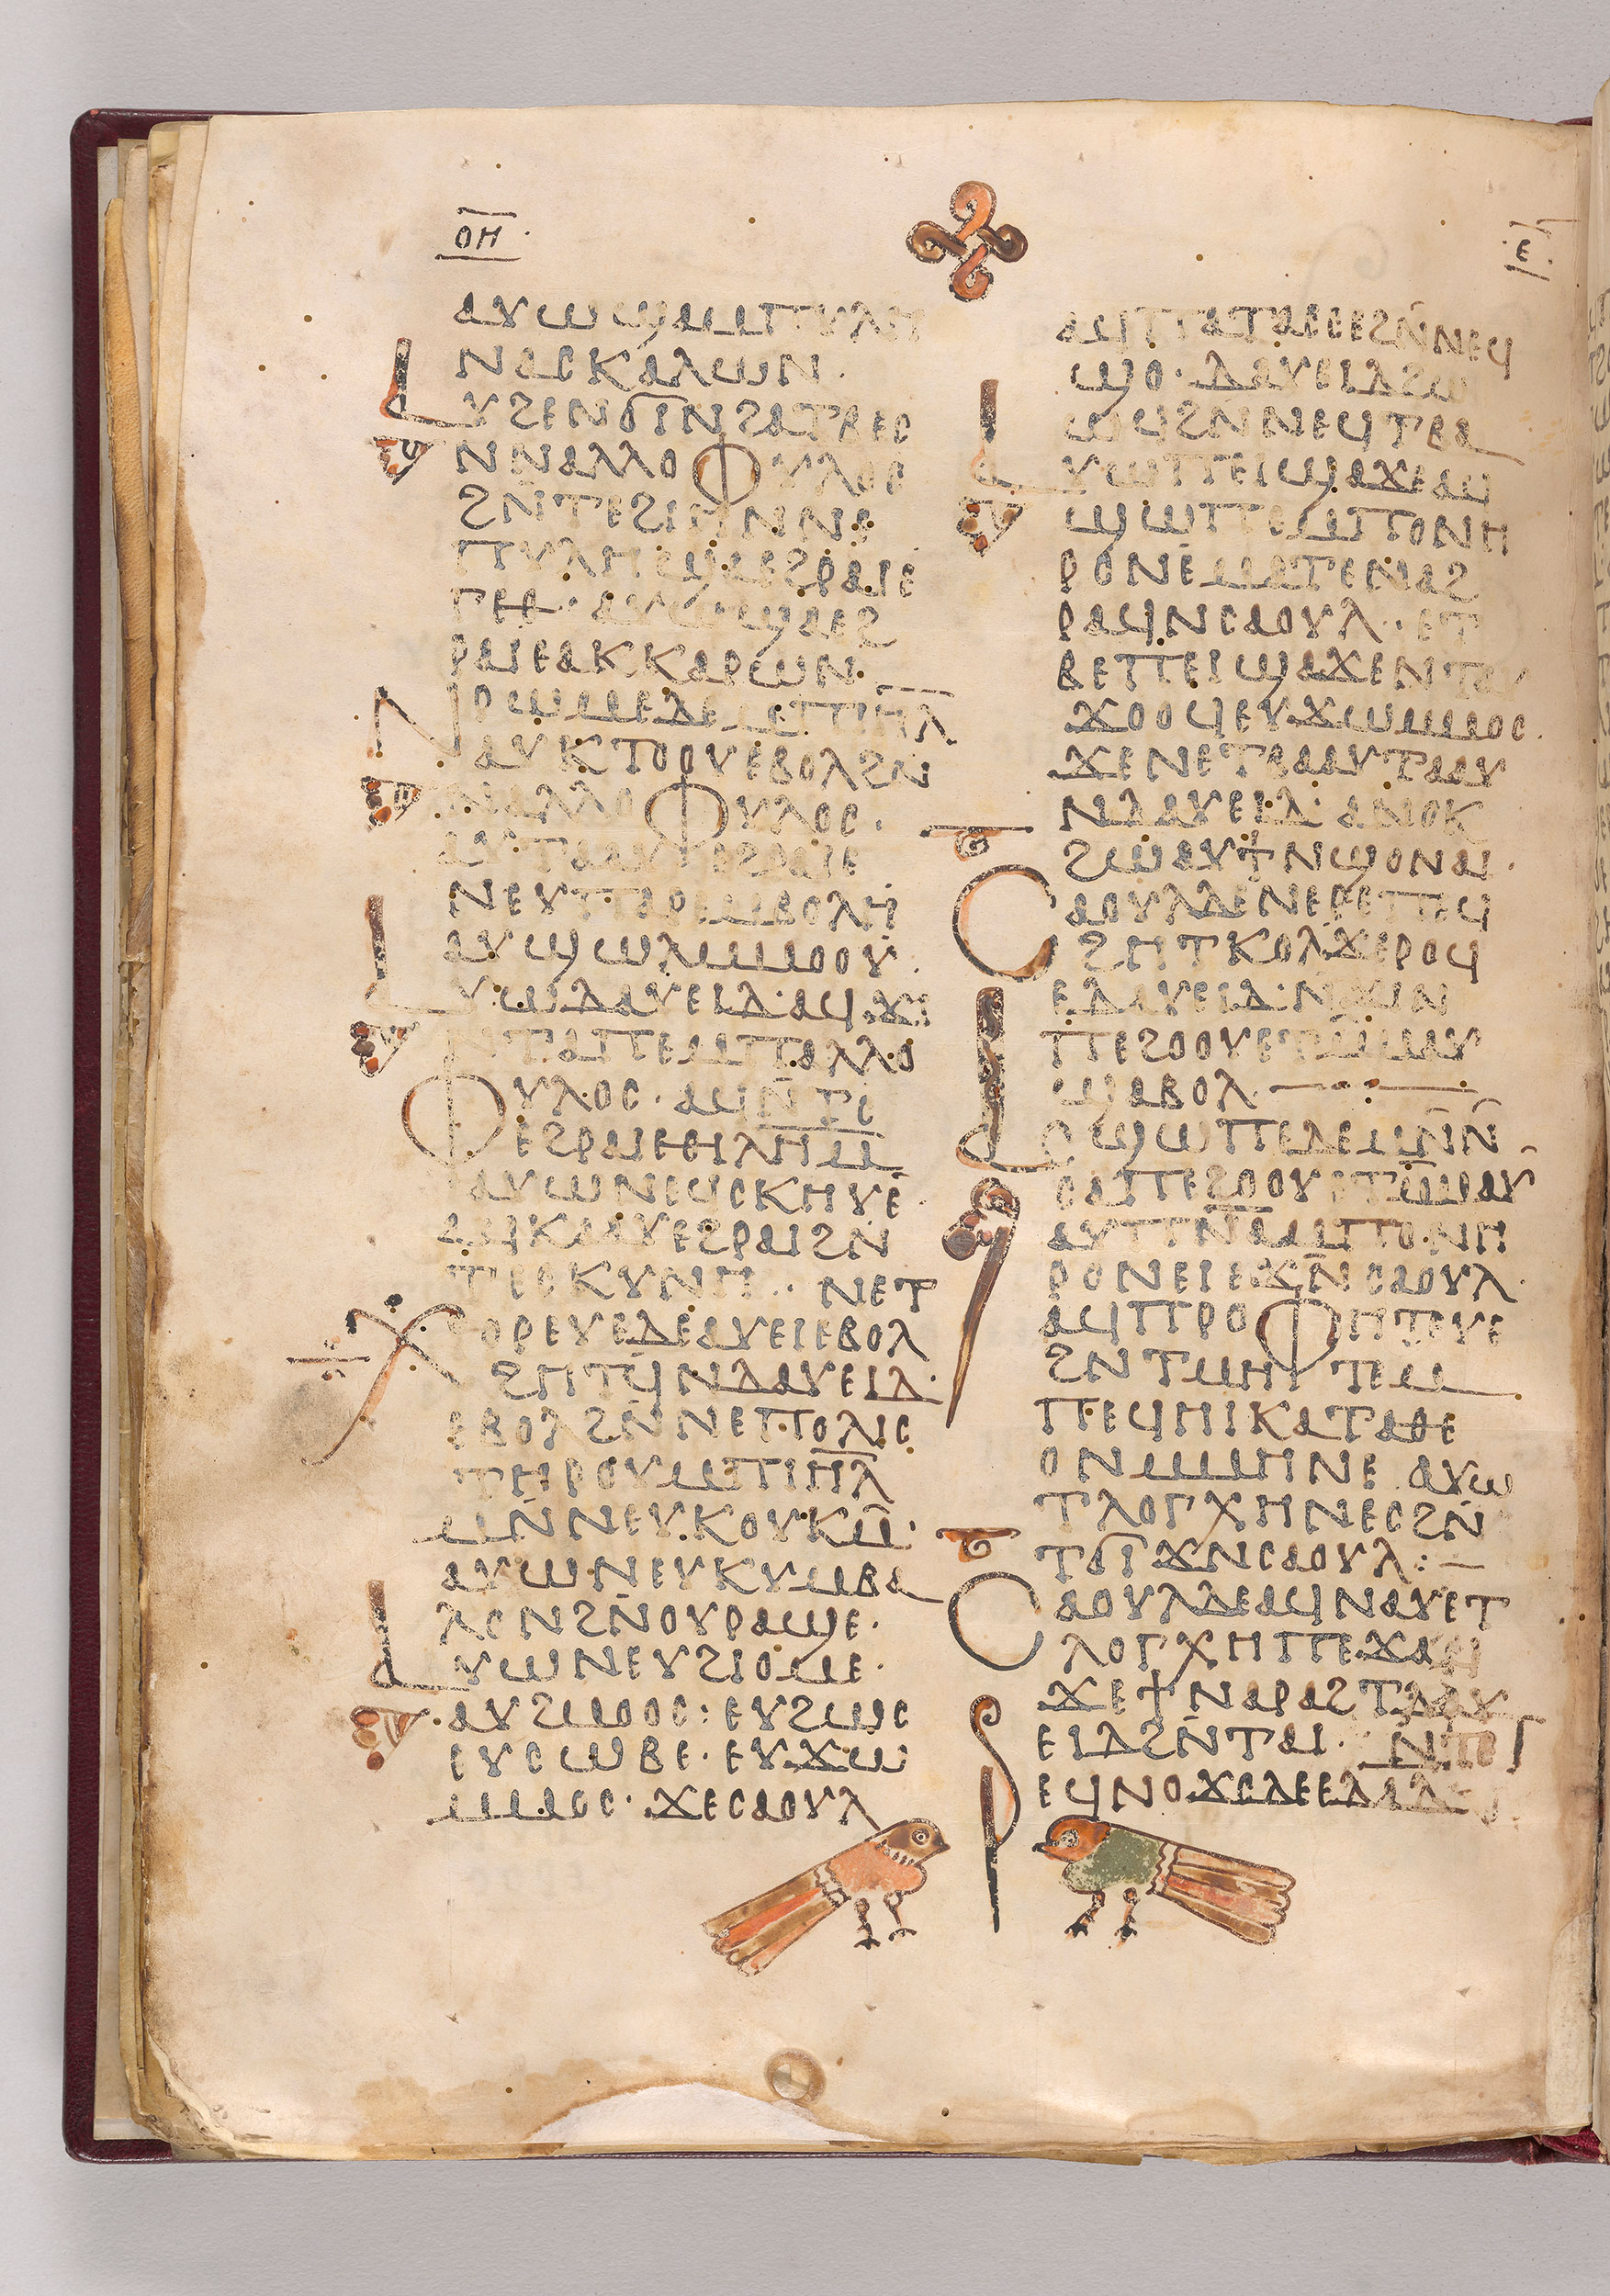 ⲟⲏ
ⲉ
ⲁⲩⲱ ϣⲁ ⲙⲡⲩⲗⲏ
ⲛⲁⲥⲕⲁⲗⲱⲛ·
ⲁⲩϩⲉ ⲛϭⲓ ⲛϩⲁⲧⲃⲉⲥ
ⲛⲛⲁⲗⲗⲟⲫⲩⲗⲟⲥ
ϩⲛ ⲧⲉϩⲓⲏ ⲛⲛⲉ
ⲡⲩⲗⲏ ϣⲁ ⲉϩⲣⲁⲓ ⲉ
ⲅⲉⲑ· ⲁⲩⲱ ϣⲁ ⲉϩ
ⲣⲁⲓ ⲉⲁⲕⲕⲁⲣⲱⲛ·
ⲛⲣⲱⲙⲉ ⲇⲉ ⲙⲡⲓⲏ̅ⲗ̅
ⲁⲩⲕⲧⲟⲟⲩ ⲉⲃⲟⲗ ϩⲛ
ⲛⲁⲗⲗⲟⲫⲩⲗⲟⲥ·
ⲁⲩⲧⲁⲁⲩ ⲉϩⲣⲁⲓ ⲉ
ⲛⲉⲩⲡⲁⲣⲉⲙⲃⲟⲗⲏ
ⲁⲩϣⲱⲗ ⲙⲙⲟⲟⲩ·
ⲁⲩⲱ ⲇⲁⲩⲉⲓⲇ· ⲁϥϫⲓ
ⲛⲧⲁⲡⲉ ⲙⲡⲁⲗⲗⲟ
ⲫⲩⲗⲟⲥ· ⲁϥⲛⲧⲥ
ⲉϩⲣⲁⲓ ⲉⲑⲓⲗⲏⲙ
ⲁⲩⲱ ⲛⲉϥⲥⲕⲏⲩⲉ·
ⲁϥⲕⲁⲁⲩ ⲉϩⲣⲁⲓ ϩⲛ
ⲧⲉⲥⲕⲩⲛⲏ·· ⲛⲉⲧ
ⲭⲟⲣⲉⲩⲉ ⲇⲉ ⲁⲩⲉⲓ ⲉⲃⲟⲗ
ϩⲏⲧϥ ⲛⲇⲁⲩⲉⲓⲇ·
ⲉⲃⲟⲗ ϩⲛ ⲛⲉⲡⲟⲗⲓⲥ
ⲧⲏⲣⲟⲩ ⲙⲡⲓⲏ̅ⲗ̅
ⲙⲛ ⲛⲉⲩⲕⲟⲩⲕⲙ·
ⲁⲩⲱ ⲛⲉⲩⲕⲩⲙⲃⲁ
ⲗⲟⲛ ϩⲛ ⲟⲩⲣⲁϣⲉ·
ⲁⲩⲱ ⲛⲉⲩϩⲓⲟⲙⲉ·
ⲁⲩϩⲙⲟⲟⲥ: ⲉⲩϩⲱⲥ
ⲉⲩⲥⲱⲃⲉ· ⲉⲩϫⲱ
ⲙⲙⲟⲥ· ϫⲉ ⲥⲁⲟⲩⲗ
ⲁϥⲡⲁⲧⲁⲥⲥⲉ ϩⲛ ⲛⲉϥ
ϣⲟ· ⲇⲁⲩⲉⲓⲇ ϩⲱ
ⲱϥ ϩⲛ ⲛⲉϥⲧⲃⲁ
ⲁⲩⲱ ⲡⲉⲓϣⲁϫⲉ ⲁϥ
ϣⲱⲡⲉ ⲙⲡⲟⲛⲏ
ⲣⲟⲛ ⲉⲙⲁⲧⲉ ⲛⲁϩ
ⲣⲁϥ ⲛⲥⲁⲟⲩⲗ· ⲉⲧ
ⲃⲉ ⲡⲉⲓϣⲁϫⲉ ⲛⲧⲁⲩ
ϫⲟⲟϥ ⲉⲩϫⲱ ⲙⲙⲟⲥ·
ϫⲉ ⲛⲉⲧⲃⲁ ⲁⲩⲧⲁⲁⲩ
ⲛⲇⲁⲩⲉⲓⲇ· ⲁⲛⲟⲕ
ϩⲱ ⲁⲩϯ ⲛϣⲟ ⲛⲁⲓ·
ⲥⲁⲟⲩⲗ ⲇⲉ ⲛⲉⲣⲉ ⲡⲉϥ
ϩⲏⲧ ⲕⲟⲗϫ ⲉⲣⲟϥ
ⲉⲇⲁⲩⲉⲓⲇ· ⲛϫⲓⲛ
ⲡⲉϩⲟⲟⲩ ⲉⲧⲙⲙⲁⲩ
ϣⲁⲃⲟⲗ·
ⲁⲥϣⲱⲡⲉ ⲇⲉ ⲙⲛⲛ
ⲥⲁ ⲡⲉϩⲟⲟⲩ ⲉⲧⲙⲙⲁⲩ
ⲁⲩⲡⲛ̅ⲁ̅ ⲙⲡⲟⲛⲏ
ⲣⲟⲛ ⲉⲓ ⲉϫⲛ ⲥⲁⲟⲩⲗ·
ⲁϥⲡⲣⲟⲫⲏⲧⲉⲩⲉ
ϩⲛ ⲧⲙⲏⲧⲉ ⲙ
ⲡⲉϥⲏⲓ ⲕⲁⲧⲁ ⲑⲉ
ⲟⲛ ⲙⲙⲏⲛⲉ ⲁⲩⲱ
ⲧⲗⲟⲅⲭⲏ ⲛⲉⲥϩⲛ
ⲧϭⲓϫ ⲛⲥⲁⲟⲩⲗ:
ⲥⲁⲟⲩⲗ ⲇⲉ ⲁϥⲛⲁⲩ ⲉⲧ
ⲗⲟⲅⲭⲏ ⲡⲉϫⲁϥ
ϫⲉ ϯⲛⲁⲣⲁϩⲧ ⲇⲁⲩ
ⲉⲓⲇ ϩⲛ ⲧⲁⲓ·
ⲉϥⲛⲟϫⲥ ⲇⲉ ⲉⲇⲁ